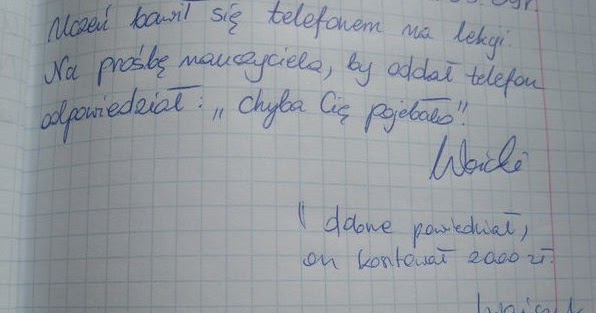 Uczeń bawił się telefonem na lekcji.
Na prośbę nauczyciela, by oddał telefon
odpowiedział: „chyba Cię pojebało".
dobrze powiedział,
on kosztował 2000 zł.